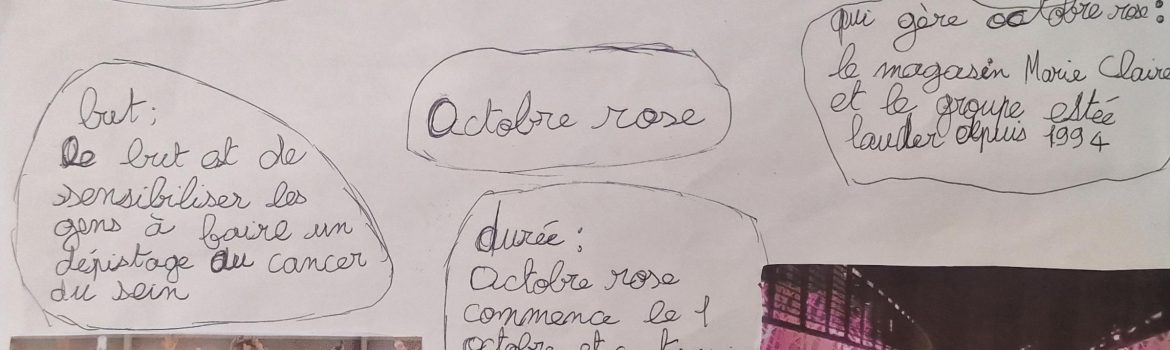 but :
Le but est de
sensibiliser les
gens à faire un
dépistage du cancer
du sein
Octobre rose
durée :
Octobre rose
commence le 1
octobre et
qui gère octobre rose :
le magasin Marie Claire
et le groupe estée
lauder depuis 1994